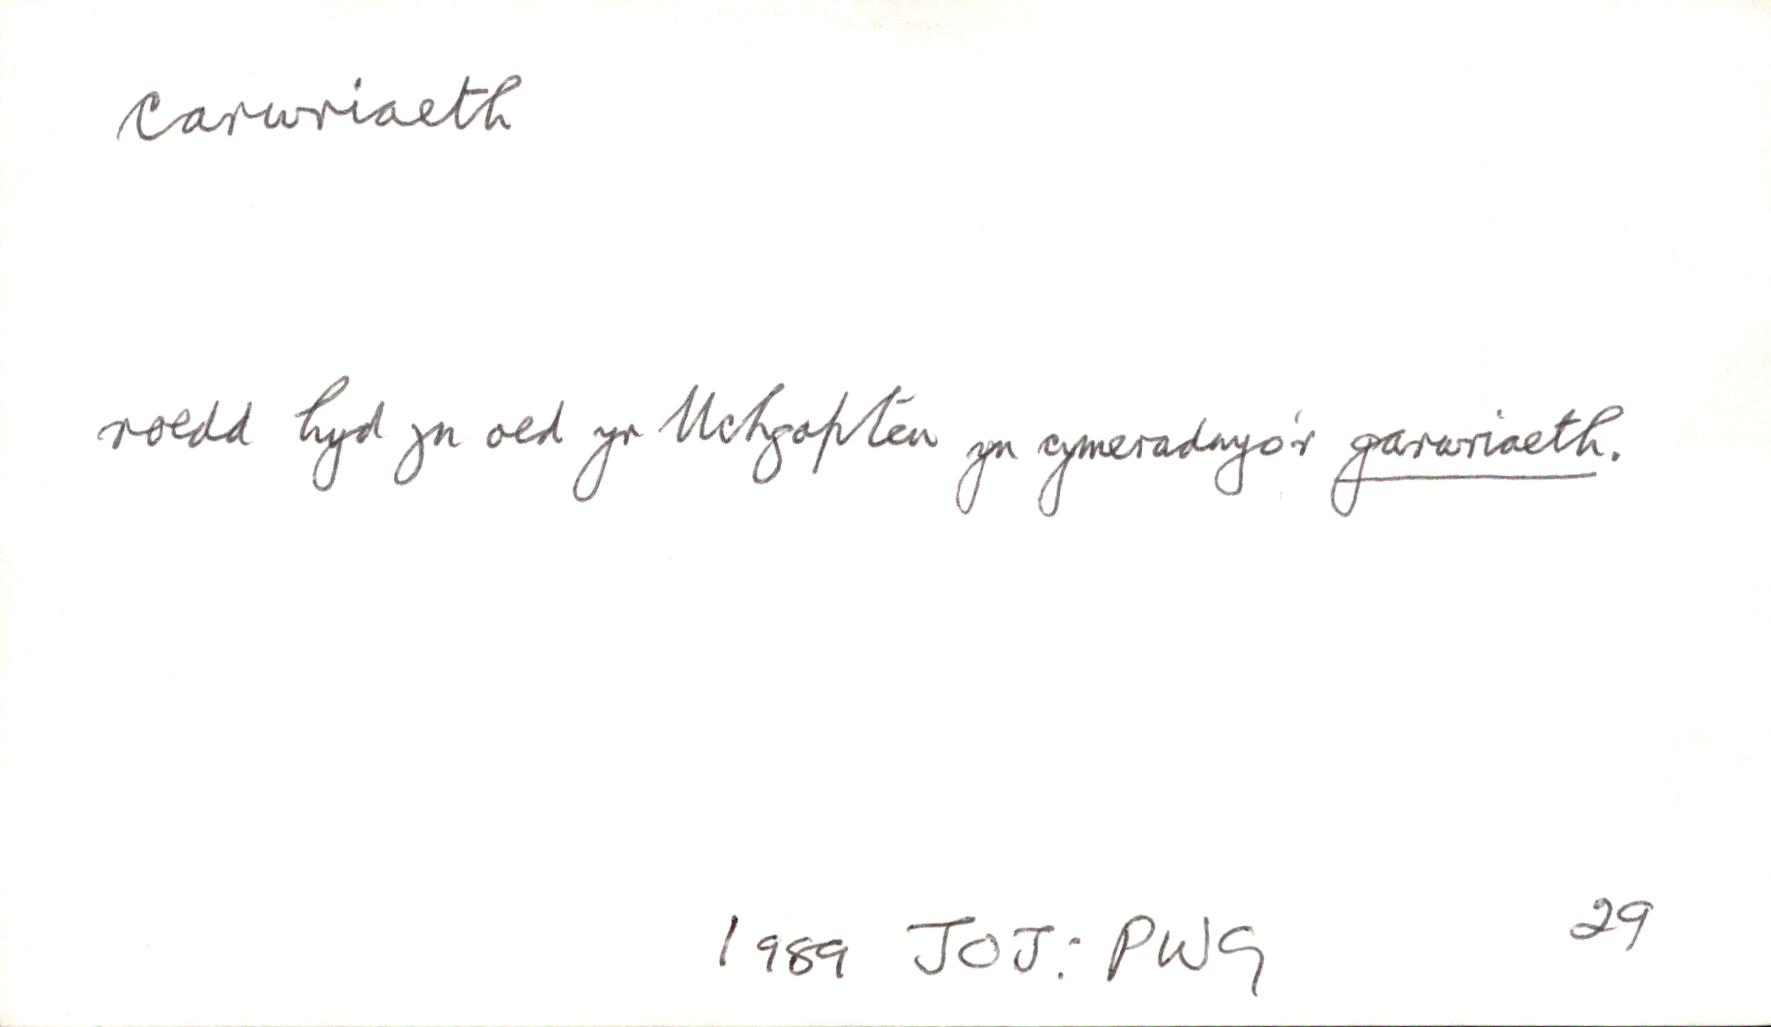 carwriaeth
roedd hyd yn oed yr Uchgapten yn cymeradwyo'r garwriaeth.
29
1989 JOJ: PWG